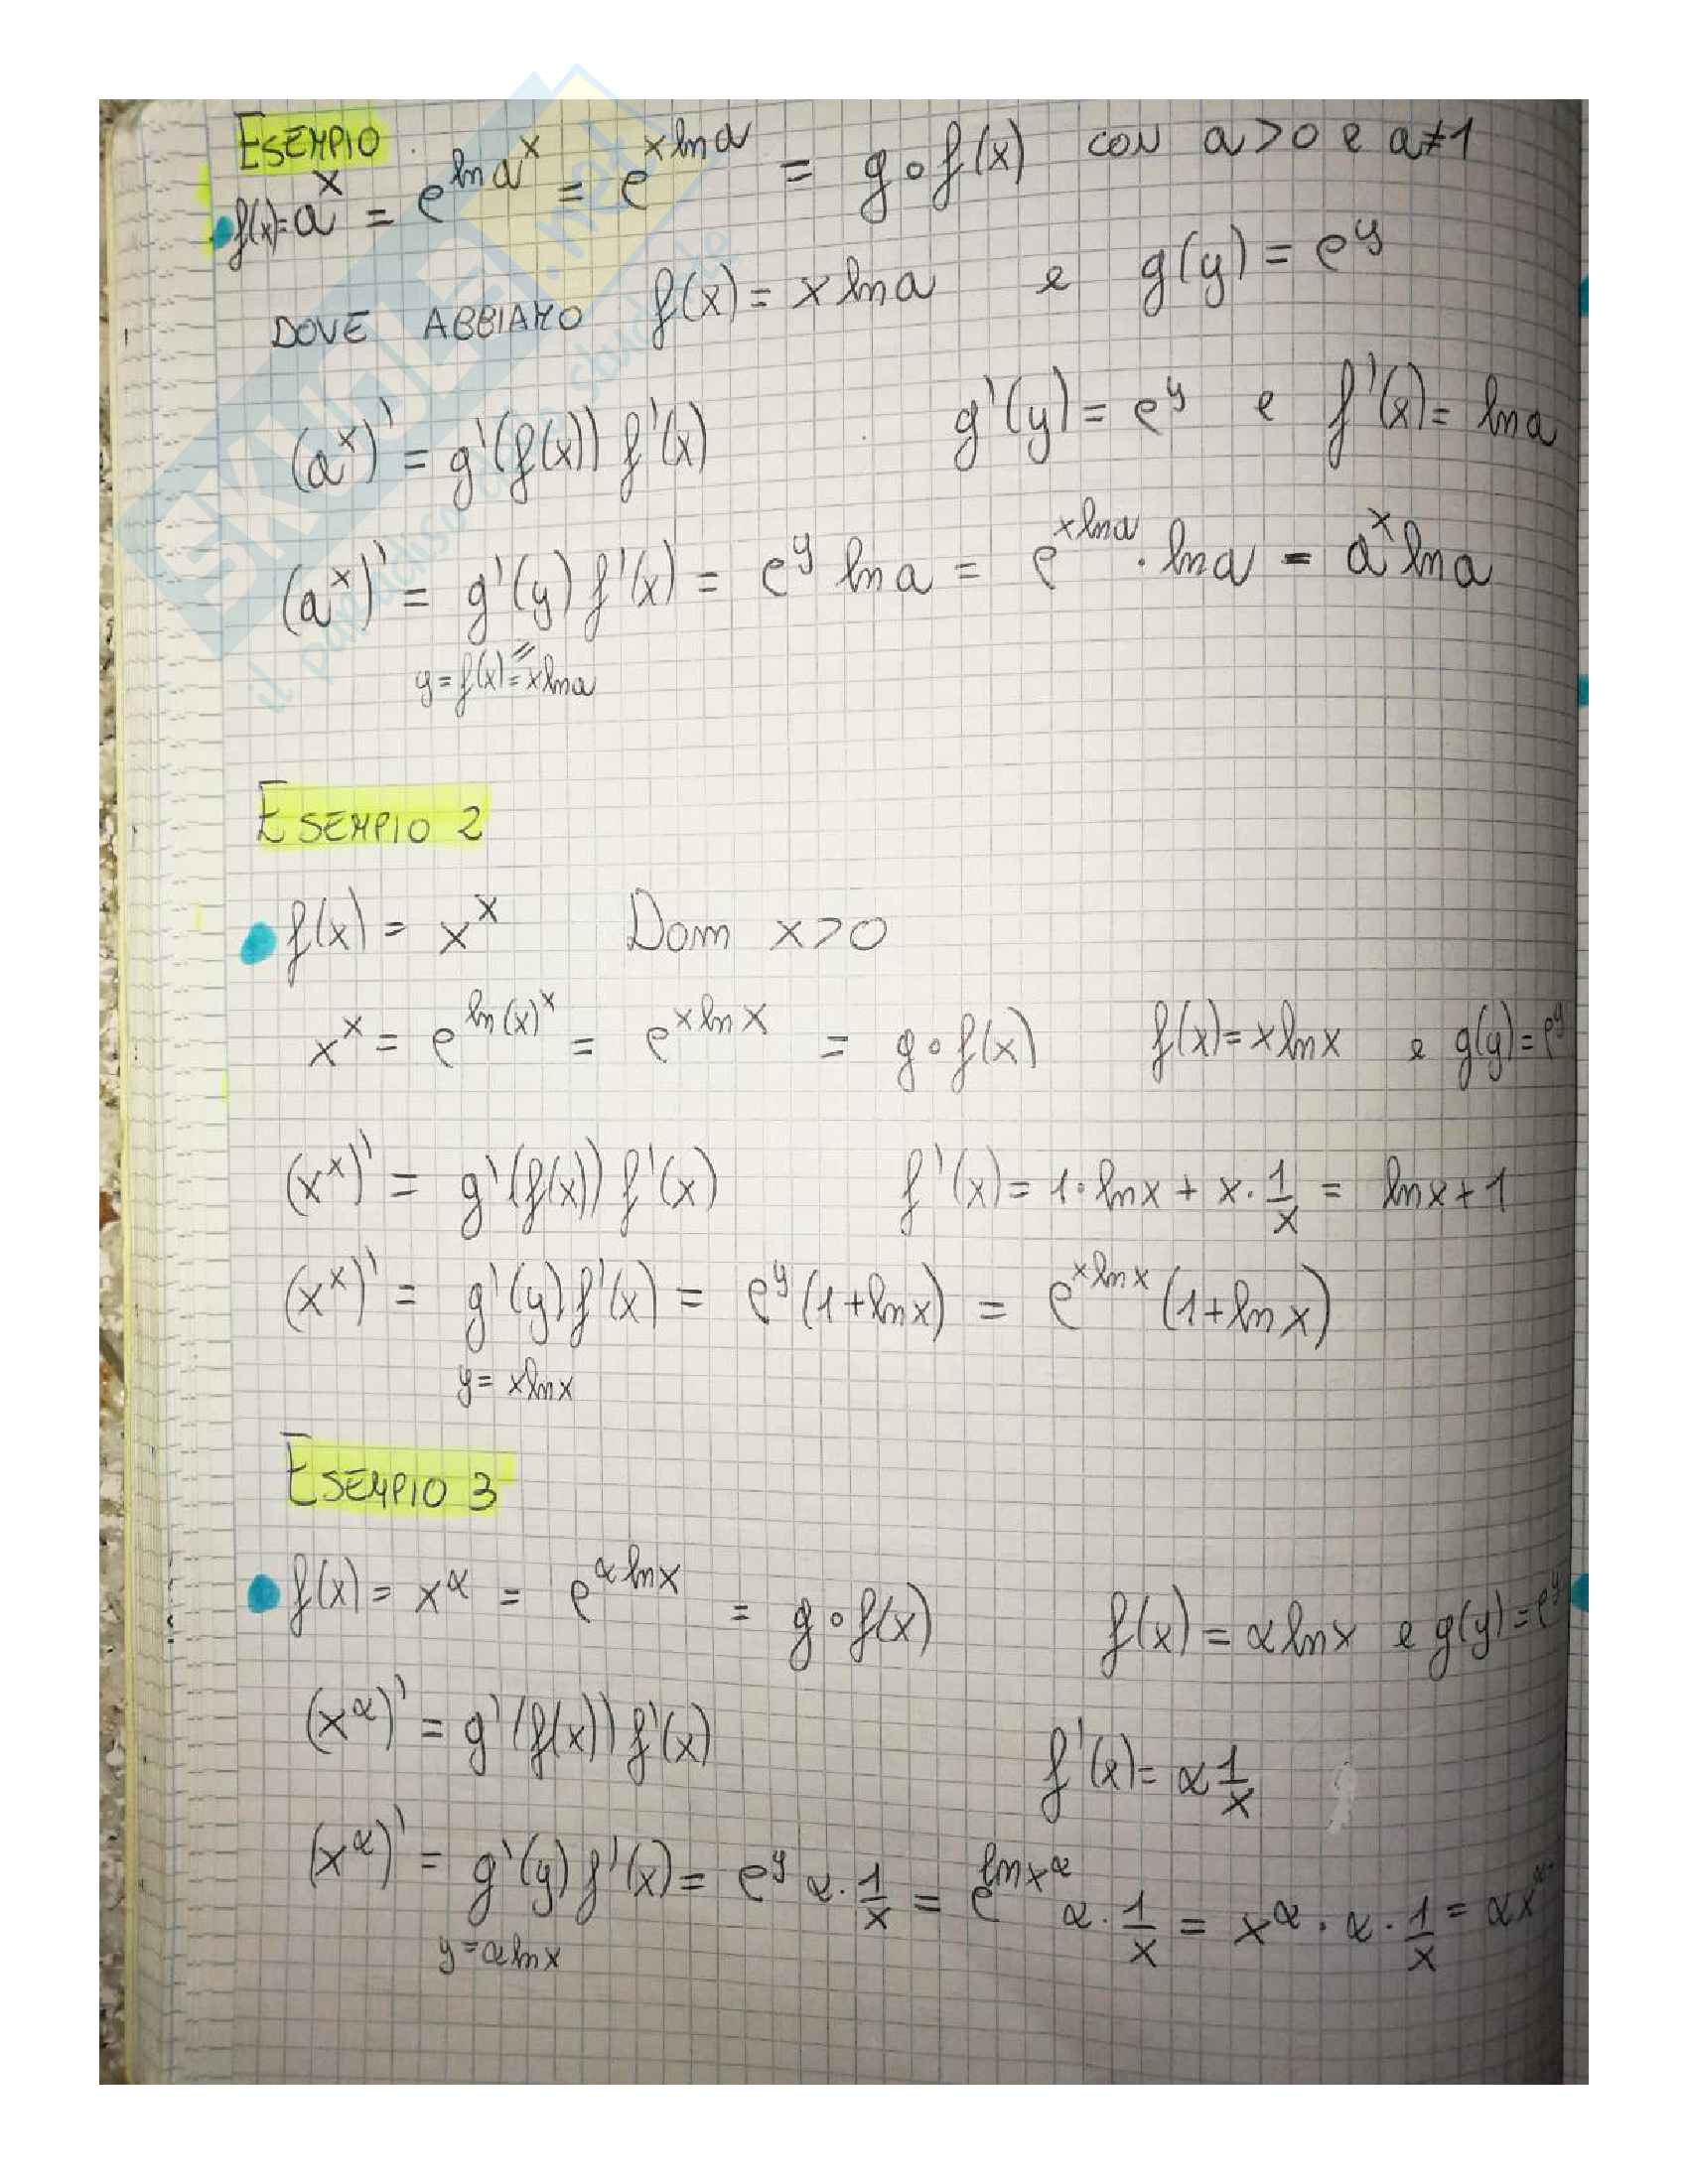 ESEMPIO
f(x)=a^x = e^{ln a^x} = e^{x ln a} = g∘f(x) con a>0 e a≠1
DOVE ABBIAMO f(x)= x ln a e g(y) = e^y
(a^x)' = g'(f(x)) f'(x) g'(y) = e^y e f'(x)= ln a
(a^x)' = g'(y) f'(x) = e^y ln a = e^{x ln a} · ln a = a^x ln a
y=f(x)=x ln a
ESEMPIO 2
f(x) = x^x Dom x>0
x^x = e^{ln(x)^x} = e^{x ln x} = g∘f(x) f(x)=x ln x e g(y)=e^y
(x^x)' = g'(f(x)) f'(x) f'(x)= 1·ln x + x·1/x = ln x+1
(x^x)' = g'(y) f'(x) = e^y (1+ln x) = e^{x ln x} (1+ln x)
y= x ln x
ESEMPIO 3
f(x) = x^α = e^{α ln x} = g∘f(x) f(x) = α ln x e g(y)=e^y
(x^α)' = g'(f(x)) f'(x) f'(x)= α 1/x
(x^α)' = g'(y) f'(x) = e^y α·1/x = e^{ln x^α} α·1/x = x^α · α · 1/x = αx^{α-
y=α ln x
SKUOLA.net
il paradiso dello studente